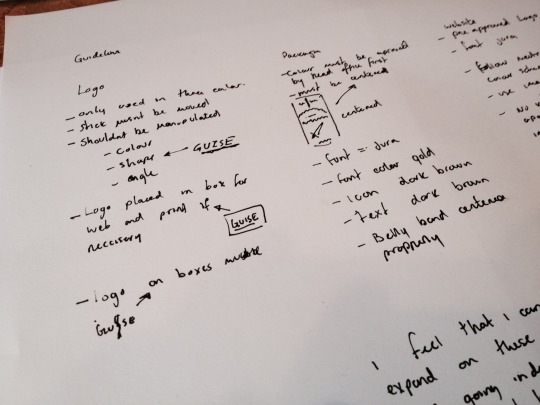 Guidelines
Logo
- only used in these color.
- stick musnt be moved
- Shouldnt be manipulated
- colour
- shape
- angle
GUISE
- Logo placed in box for
web and print if
neccisary
GUISE
- logo on boxes
GUISE
Packaging
- colour must be approved
by head office first
- must be centered
centered
- font = Jura
- font color gold
- Icon dark brown
- Text dark brown
- Belly band centered
website
- pre approved logo
- font jura
- follow
colour
- use
- No
I feel that I can
expand on these
going